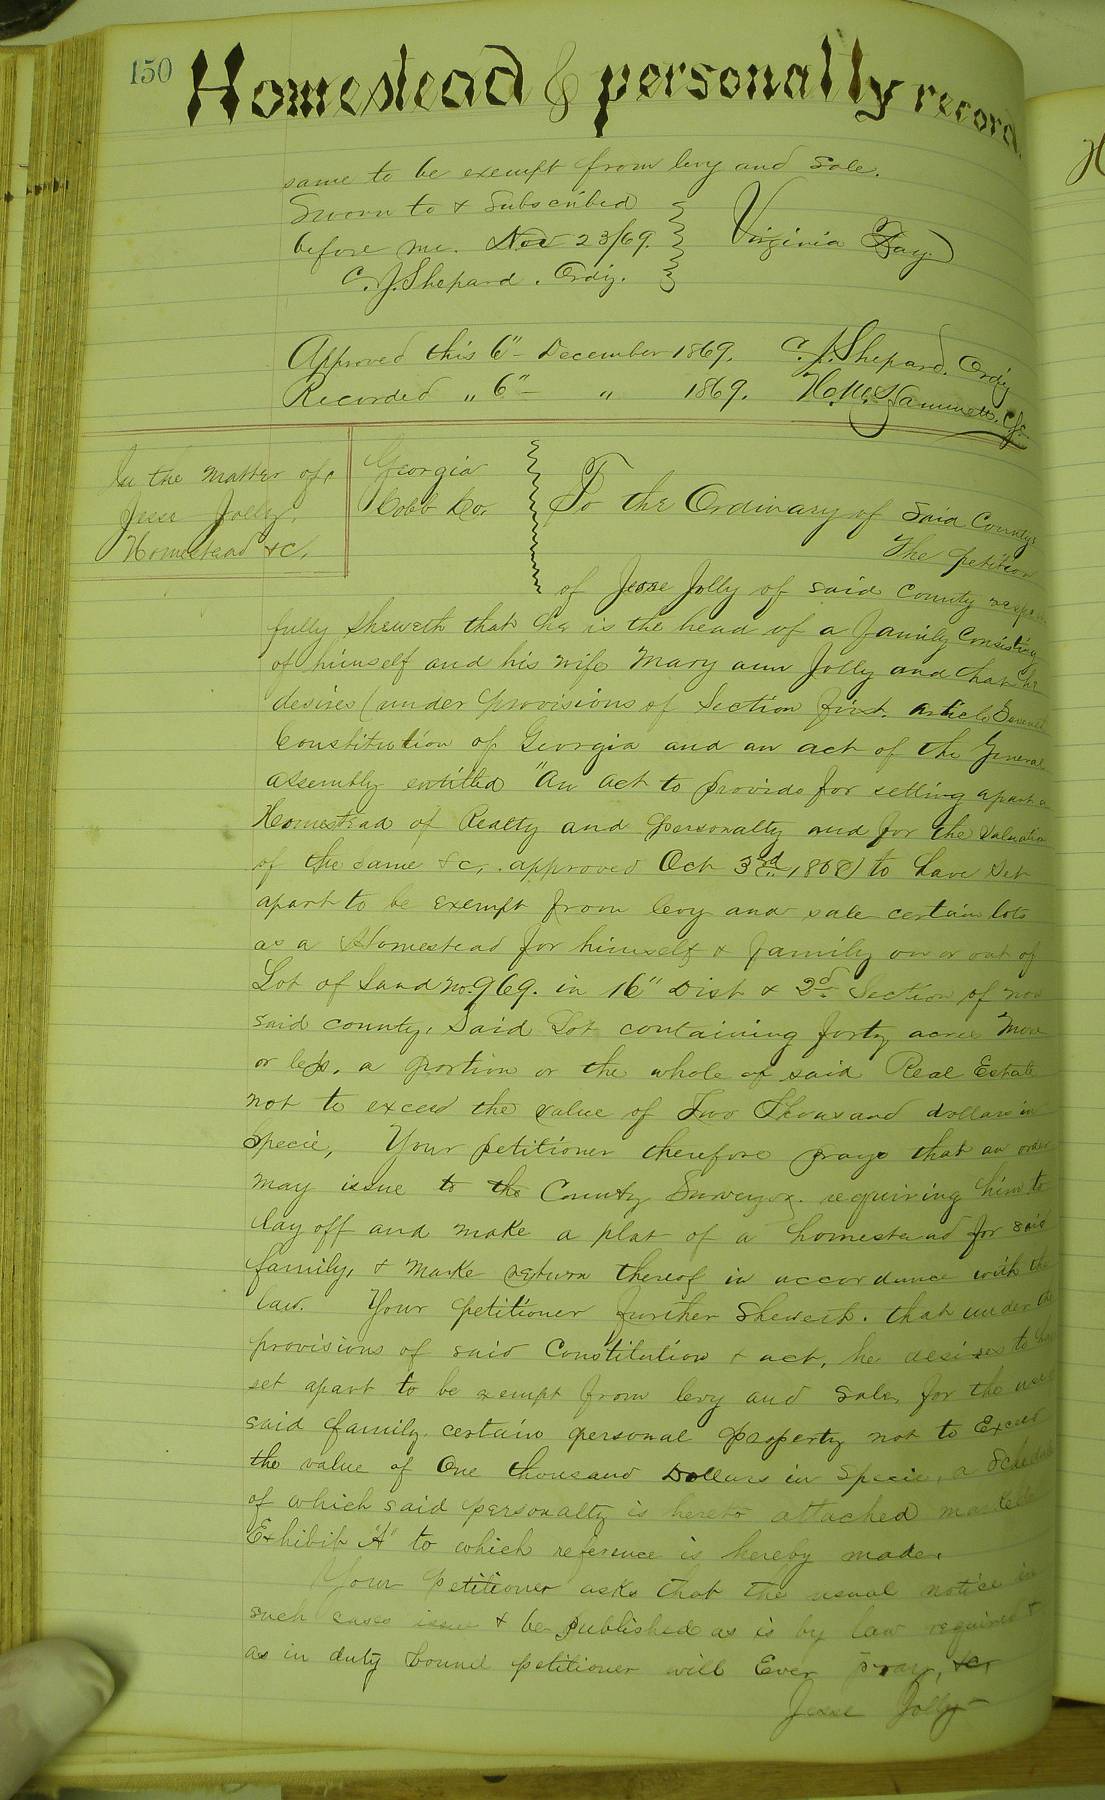 150 Homestead & personally record.
same to be exempt from levy and sale.
Sworn to & Subscribed
before me. Nov 23/69. Virginia Day
C. J. Shepard. Ordy.
Approved this 6" December 1869. C. J. Shepard. Ordy
Recorded „ 6" „ 1869. H. M. Hammett. C.S.C.
In the matter of,
Jesse Jolly.
Homestead &c.
Georgia
Cobb Co.
To the Ordinary of said County.
The petition
of Jesse Jolly of said county respect
fully sheweth that he is the head of a family consisting
of himself and his wife Mary ann Jolly and that he
desires (under provisions of Section first. article Seventh
Constitution of Georgia and an act of the General
assembly entitled "An act to provide for setting apart a
Homestead of Realty and personalty and for the valuation
of the same &c. approved Oct 3rd, 1868) to have set
apart to be exempt from levy and sale certain lots
as a Homestead for himself & family on or out of
Lot of Land no. 969. in 16" Dist & 2d Section of now
said county, Said Lot containing forty acres more
or less, a portion or the whole of said Real Estate
not to exceed the value of Two Thousand dollars in
Specie, Your petitioner therefore prays that an order
may issue to the County Surveyor. requiring him to
lay off and make a plat of a homestead for said
family, & make return thereof in accordance with the
law. Your petitioner further sheweth. that under the
provisions of said Constitution & act, he desires to have
set apart to be exempt from levy and sale, for the use of
said family. certain personal property not to Exceed
the value of One thousand Dollars in Specie, a Schedule
of which said personalty is hereto attached marked
Exhibit "A" to which reference is hereby made.
Your petitioner asks that the usual notice in
such cases issue & be published as is by law required &
as in duty bound petitioner will Ever pray, &c,
Jesse Jolly